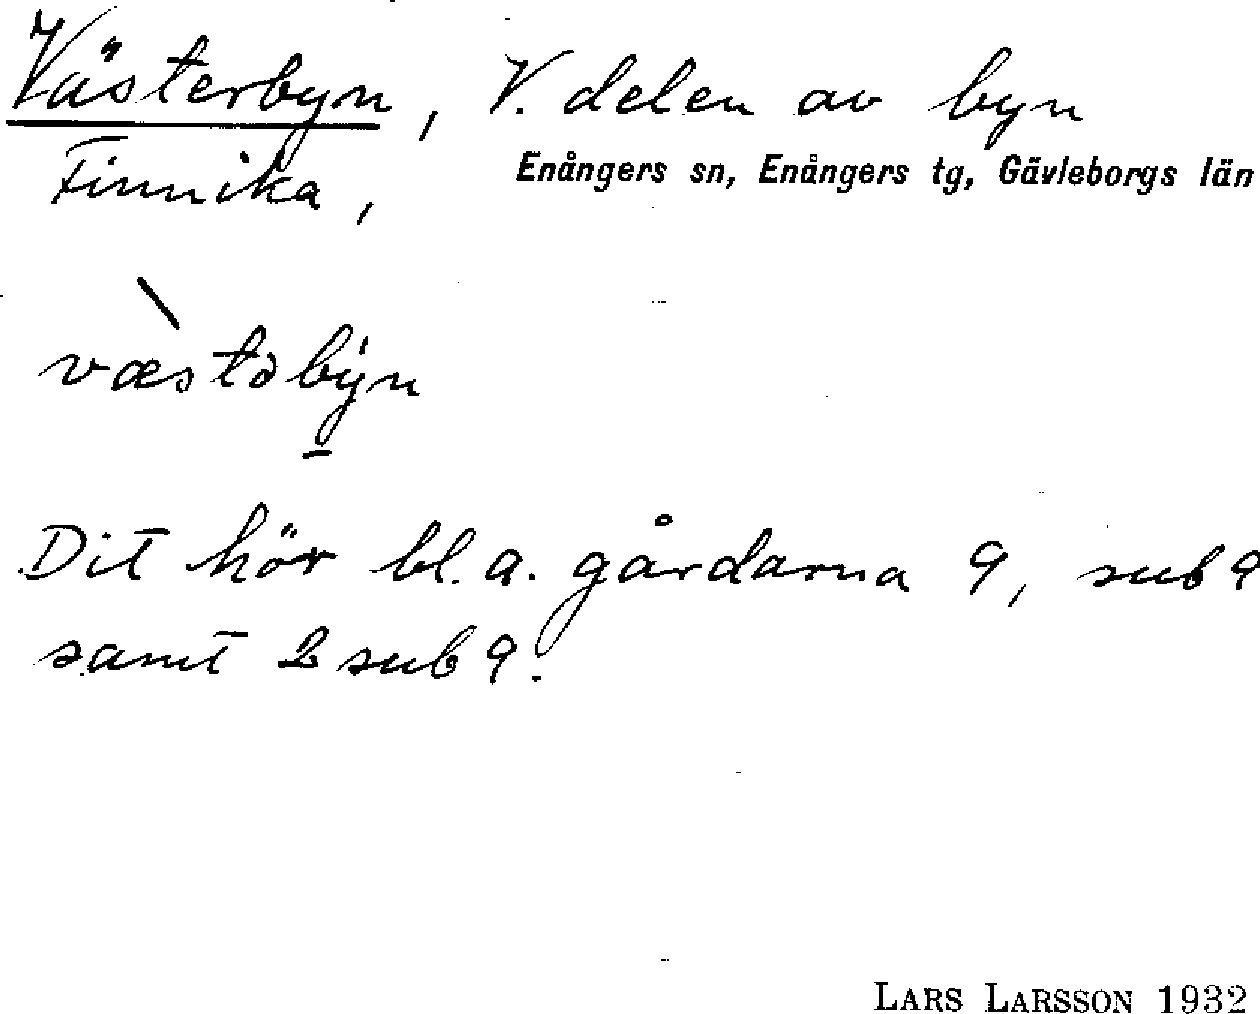 Västerbyn, V. delen av byn
Finnika,
Enångers sn, Enångers tg, Gävleborgs län
væstəbýn
Dit hör bl. a. gårdarna 9, sub 9
samt 2 sub 9.
LARS LARSSON 1932